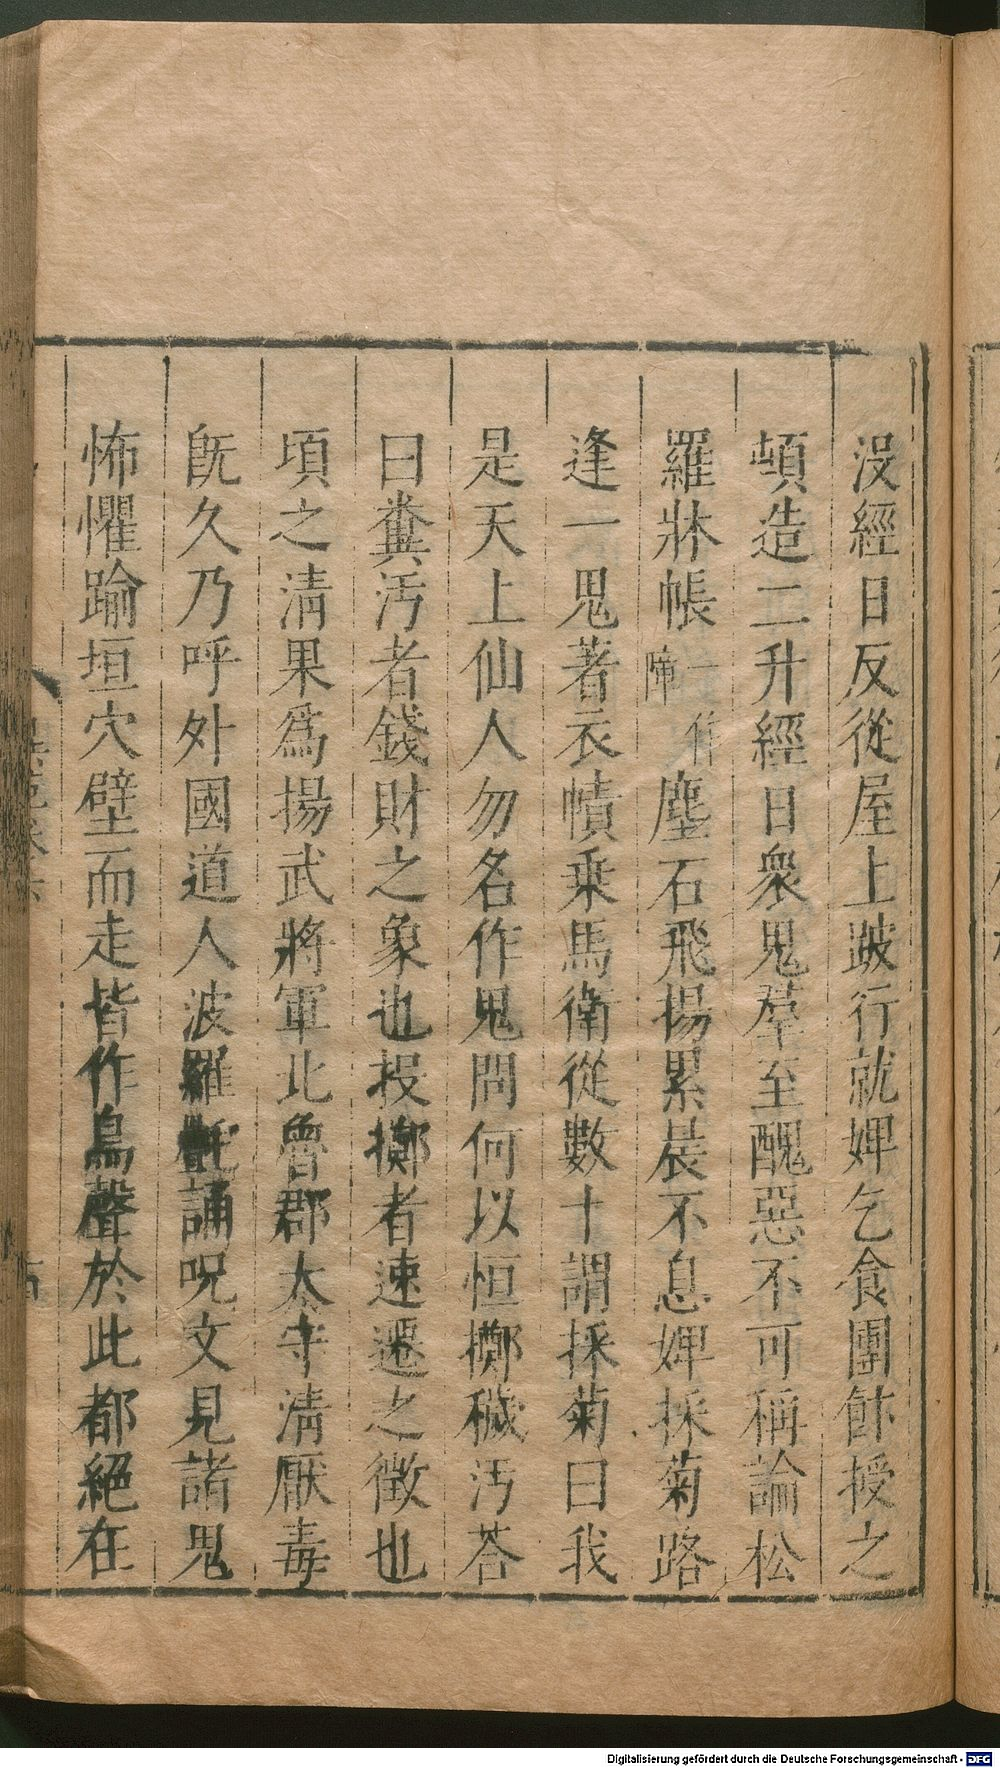 没經日反從屋上跛行就婢乞食團飰授之
頓造二升經日衆鬼羣至醜惡不可稱論松
羅牀帳一作㡓塵石飛揚累晨不息婢採菊路
逢一鬼著衣幘乘馬衛從數十謂採菊曰我
是天上仙人勿名作鬼問何以恒擲穢汚荅
曰糞汚者錢財之象也投擲者速遷之徵也
頃之淸果爲揚武將軍北魯郡太守淸厭毒
旣久乃呼外國道人波羅㲲誦呪文見諸鬼
怖懼踰垣穴壁而走皆作鳥聲於此都絕在
Digitalisierung gefördert durch die Deutsche Forschungsgemeinschaft - DFG